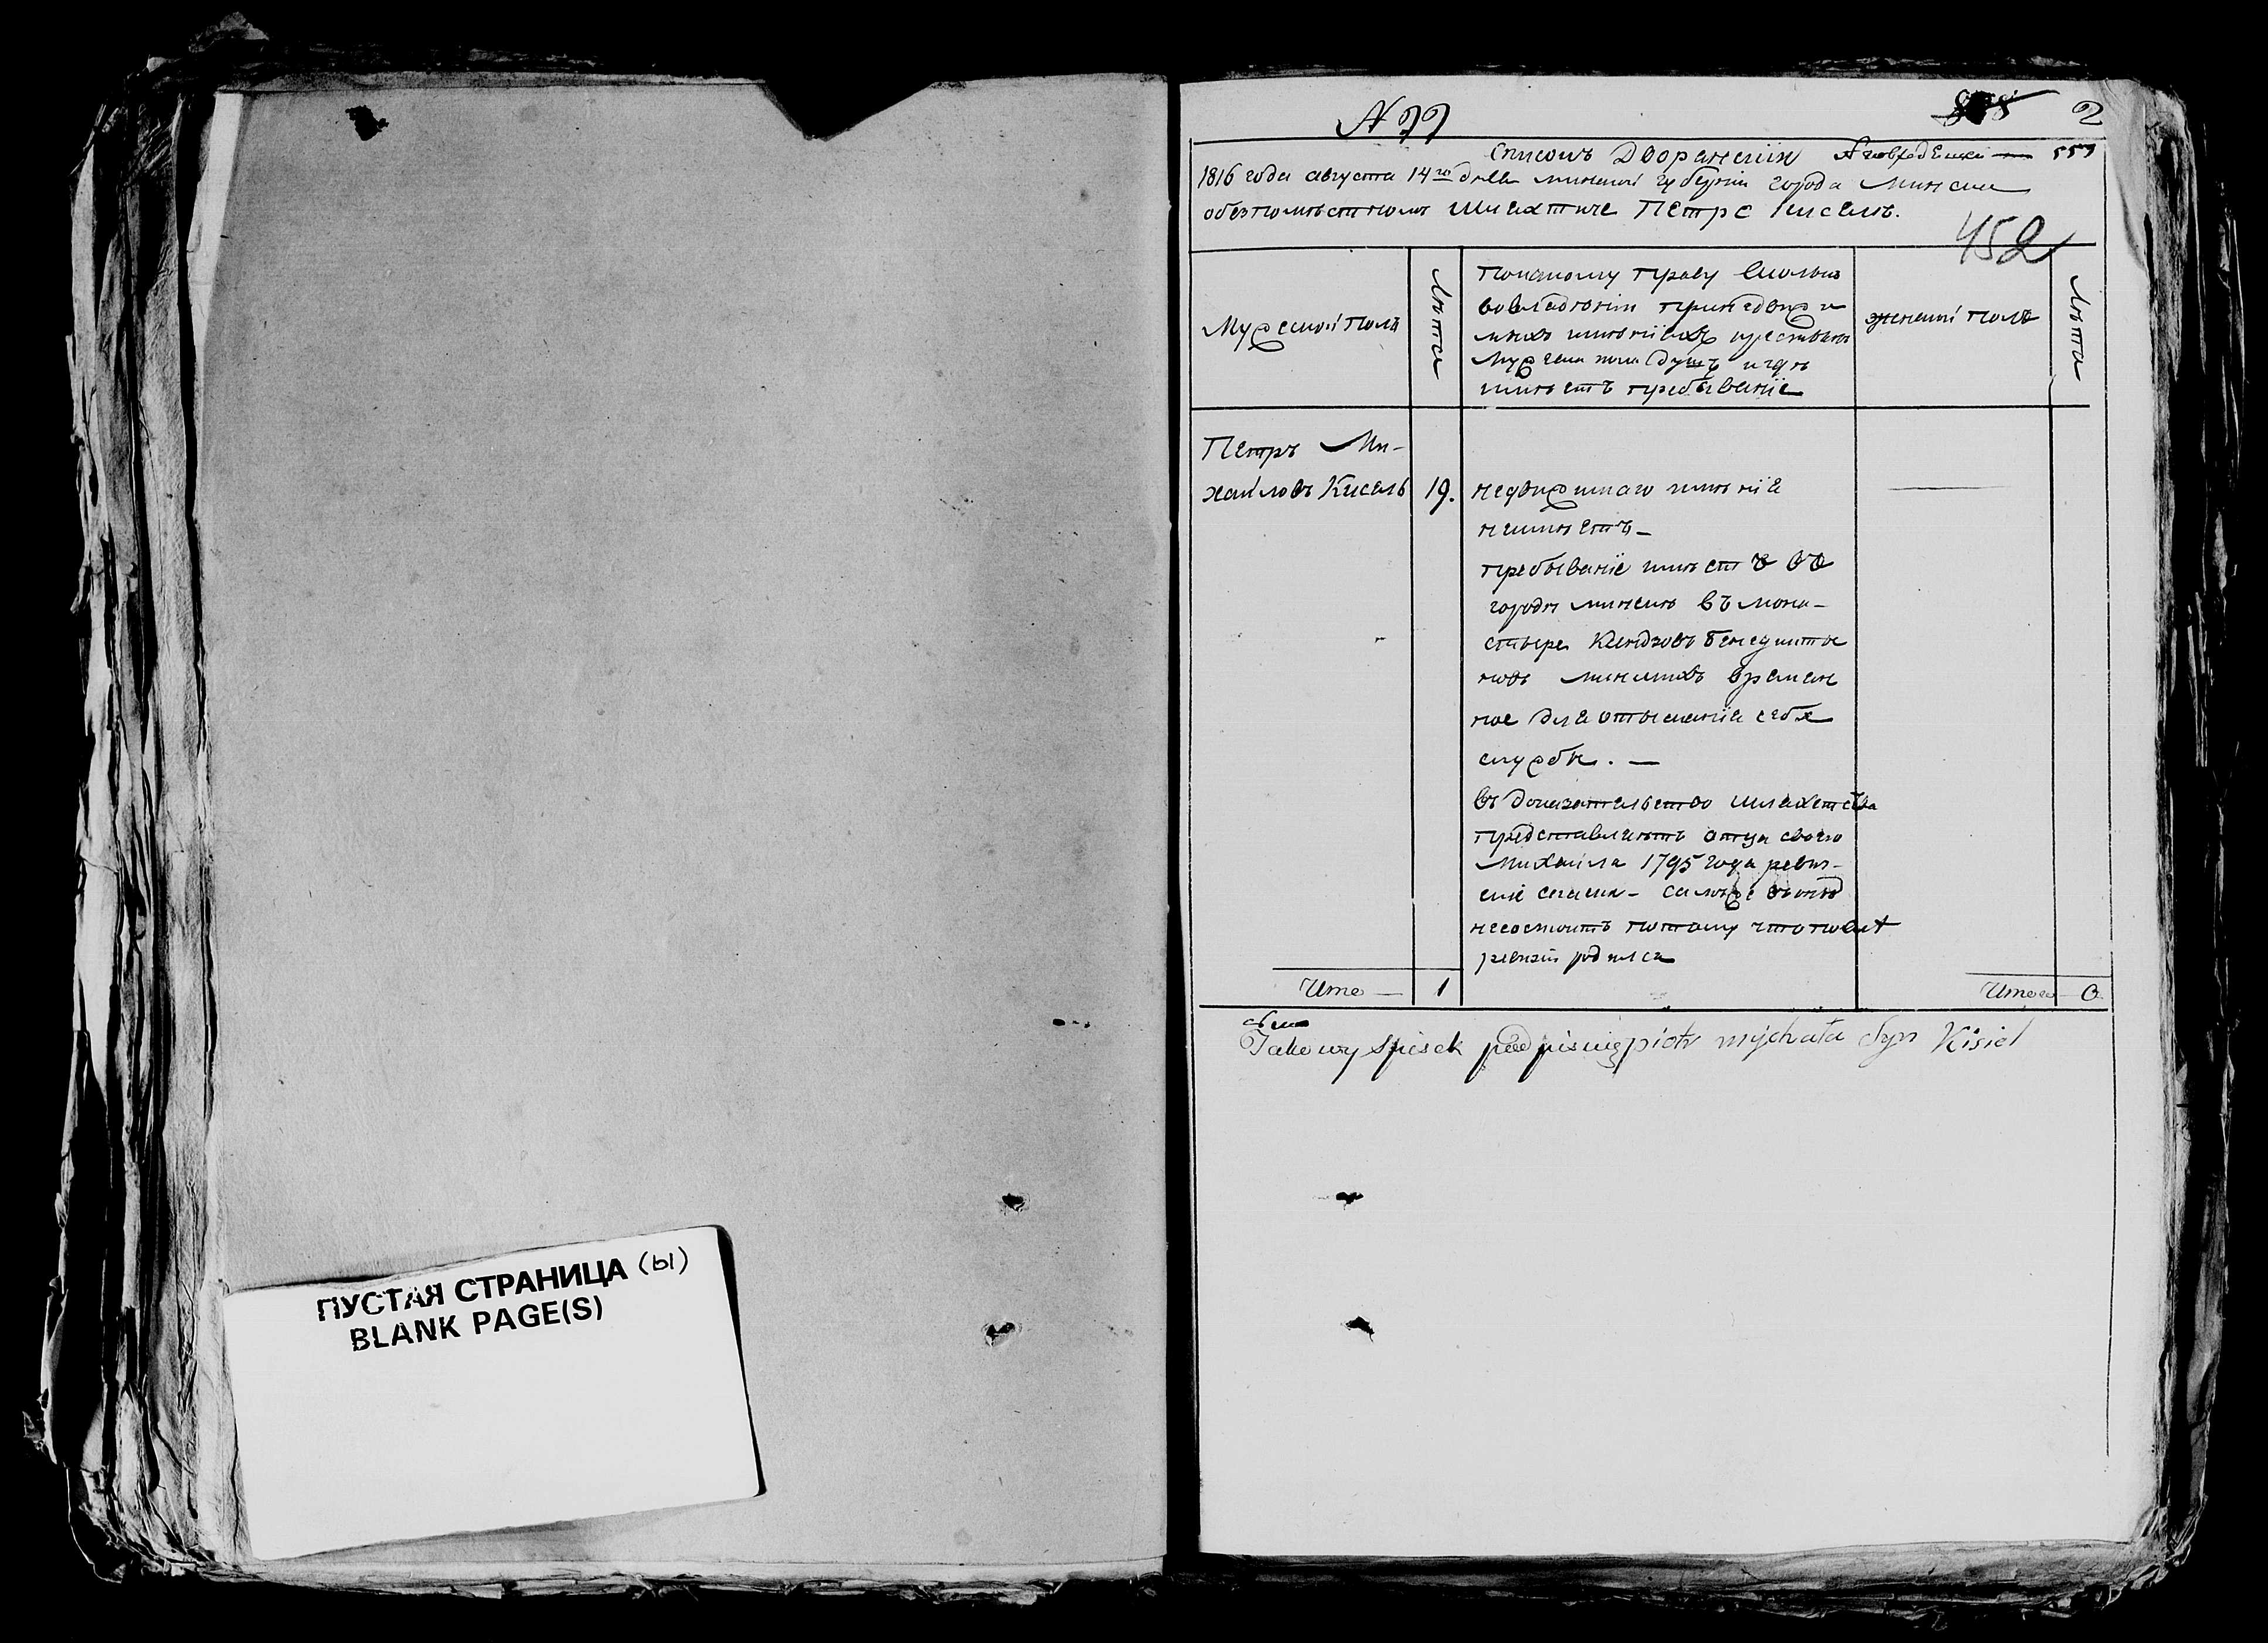 ПУСТАЯ СТРАНИЦА (ы)
BLANK PAGE(S)
N 99
2
Списокъ Дворянскій
1816 года августа 14го дня минской губерніи города Минска
обезпомѣстномъ Шляхтиче Петре Киселѣ.
452
Мужеской полъ
Лѣта
покакому праву сколько
вовладѣніи принедвижи
мыхъ имѣніяхъ крестьянъ
мужеска пола душъ игдѣ
имѣетъ пребываніе
женскій полъ
Лѣта
Петръ Ми-
хайловъ Кисель
19.
недвижимаго имѣнія
неимѣетъ –
пребываніе имѣетъ въ
городѣ минскѣ въ мона-
стыре Ксендзовъ бенедикты
новъ минскихъ времен
ное для отысканія себѣ
службы. —
въ доказательство шляхетства
представляетъ отца своего
Михаила 1795 года ревиз-
скіе сказки – самъже
несостоитъ потому что послѣ
ревизіи родился
Итого — 1
Итого — 0
Takowy Spisek podpisuię piotr mychała Syn Kisiel